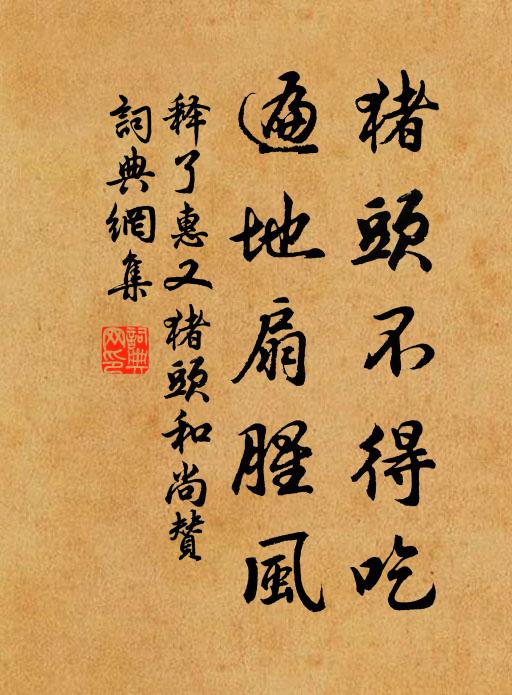 猪頭不得吃
遍地扇腥風
释了惠又猪頭和尚贊
詞典網集
詞典网印